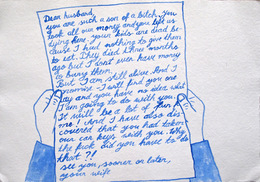 Dear husband,
you are such a son of a bitch. You
took all our money and you left us
dying here. Your kids are dead be-
cause I had nothing to give them
to eat. They died three months
ago but I don't even have money
to bury them.
But I am still alive. And I
promise I will find you one
day and you have no idea what
I am going to do with you.
It will be a lot of fun
me. And I have also dis-
covered that you had taken
our car keys with you. Why
the fick did you have to do
that?!
see you sooner or later,
your wife